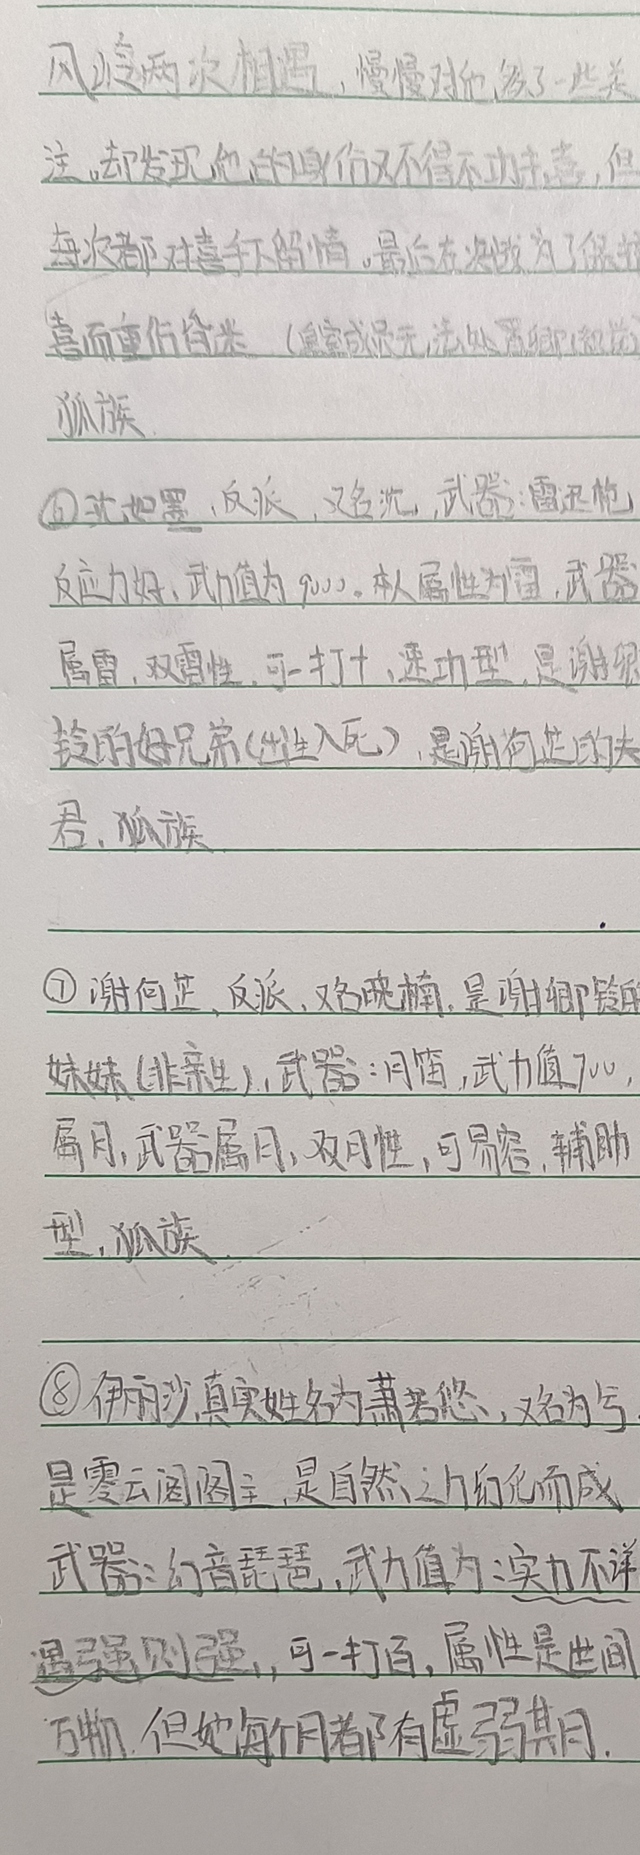 两次相遇,慢慢对他多了一些关
注,却发现他的身份又不得不功击喜,但
每次都对喜手下留情。最后在决战为了保护
喜而重伤
狐族
⑥沈如墨,反派,又名沈,武器:雷迅枪
反应力好,武力值为9000。本人属性为雷,武器
属雷,双雷性,可一打十,速功型,是谢卿
铃的好兄弟(出生入死),是谢向芷的夫
君,狐族
⑦谢向芷,反派,又名晚楠,是谢卿铃的
妹妹(非亲生),武器:月笛,武力值700,
属月,武器属月,双月性,可易容,辅助
型,狐族
⑧伊丽沙,真实姓名为萧若悠,又名为兮
是零云阁阁主,是自然之力幻化而成
武器:幻音琵琶,武力值为:实力不详
遇强则强,可一打百,属性是世间
万物.但她每个月都有虚弱期月.